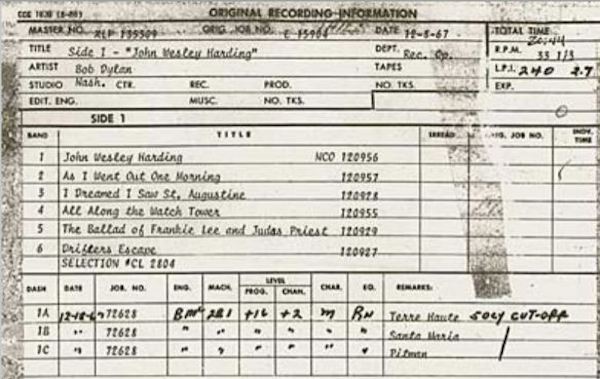 ORIGINAL RECORDING INFORMATION
MASTER NO. XLP 135309 ORIG. JOB NO. DATE 12-5-67 TOTAL TIME
TITLE Side 1 - "John Wesley Harding" DEPT. Rec. Op. R.P.M. 33 1/3
ARTIST Bob Dylan TAPES L.P.I. 240 2.7
STUDIO Nash. CTR. REC. PROD. NO. TKS. EXP.
EDIT. ENG. MUSC. NO. TKS.
SIDE 1
BAND TITLE JOB NO. INDV. TIME
1 John Wesley Harding NCO 120956
2 As I Went Out One Morning 120957
3 I Dreamed I Saw St. Augustine 120928
4 All Along the Watch Tower 120955
5 The Ballad of Frankie Lee and Judas Priest 120929
6 Drifters Escape 120927
SELECTION #CL 2804
DASH DATE JOB. NO. ENG. MACH. LEVEL PROG. CHAN. CHAR. EQ. REMARKS:
1A 72628 +16 +2 m Terre Haute CUT-OFF
1B " 72628 " " " " " " Santa Maria
1C " 72628 " " " " " " Pitman